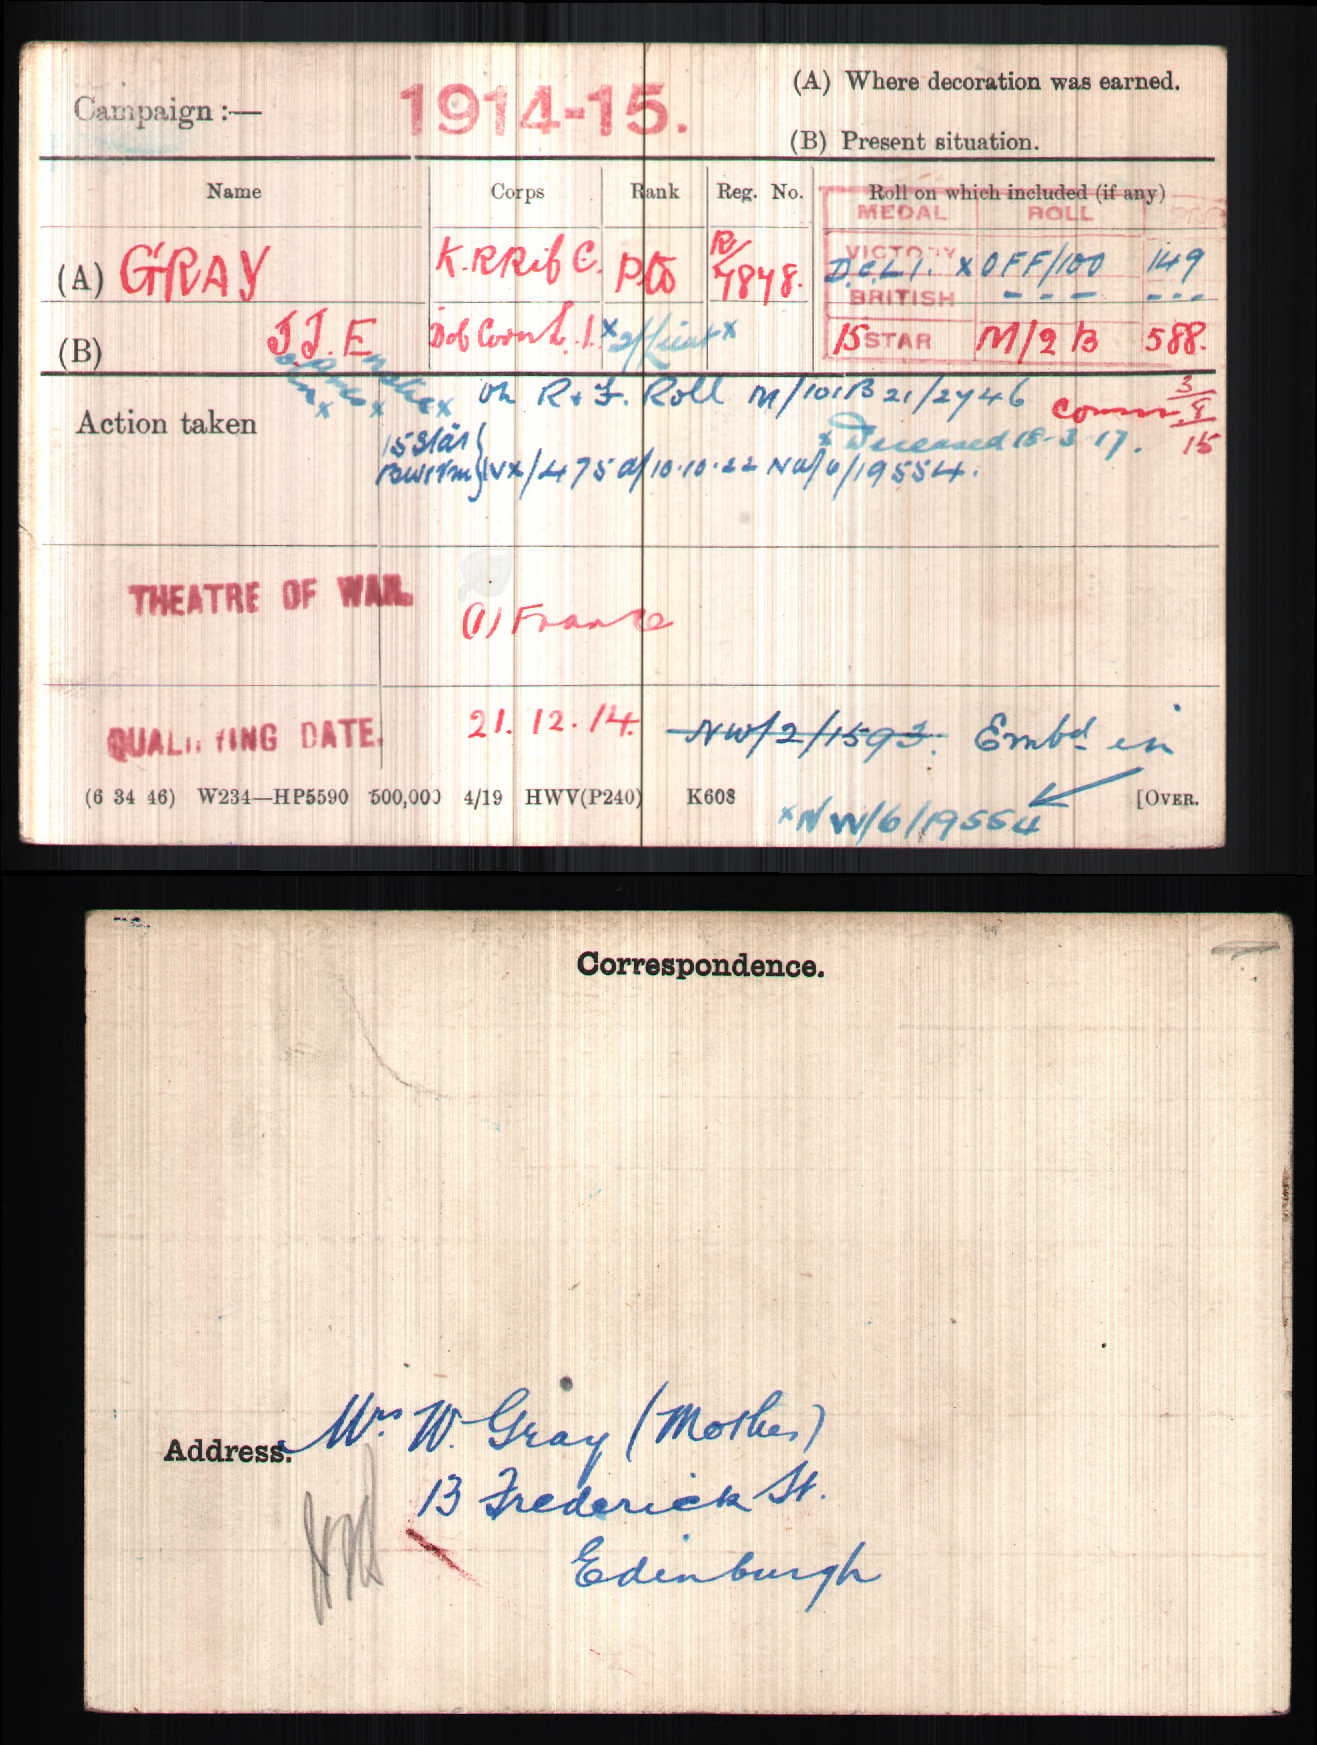 Campaign :— 1914-15. (A) Where decoration was earned.
(B) Present situation.
Name Corps Rank Reg. No. Roll on which included (if any)
MEDAL ROLL
(A) GRAY K.R.Rif C. Pte R/7848. VICTORY D.C.L.I. x OFF/100 149
BRITISH - - - - - -
(B) J.J.E. Dof Corn L.I. x 2/Lieut x 15 STAR M/2 B 588.
John x x x
Action taken on R & F. Roll M/101B21/2746 Comm 3/8/15
15 Star x Deceased 18-3-17.
BW & Vm } IVX/475 d/10.10.22 NW/6/19554.
THEATRE OF WAR. (1) France
QUALIFYING DATE. 21. 12. 14. NW/2/1593. Embd in
(6 34 46) W234—HP5590 500,000 4/19 HWV(P240) K608 [OVER.
x NW/6/19554
Correspondence.
Address. Mrs W. Gray (Mother)
13 Frederick St.
Edinburgh